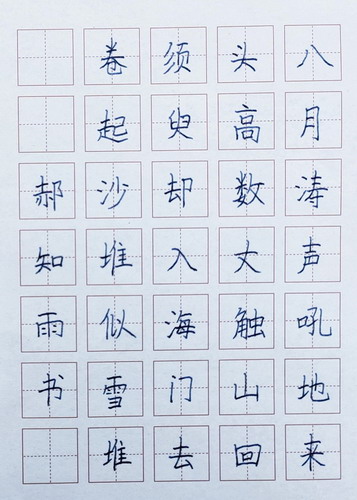 八月涛声吼地来
头高数丈触山回
须臾却入海门去
卷起沙堆似雪堆
郝知雨书